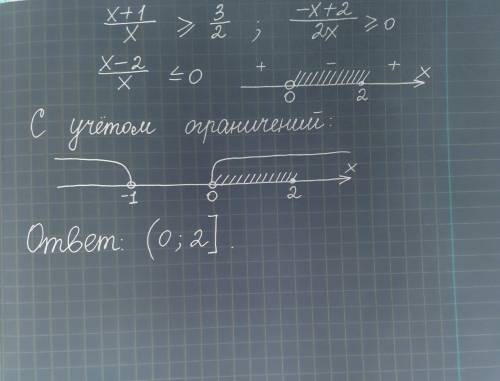 (x+1)/x ≥ 3/2 ; (-x+2)/(2x) ≥ 0
(x-2)/x ≤ 0 + - + x
0 2
С учётом ограничений:
x
-1 0 2
Ответ: (0; 2].